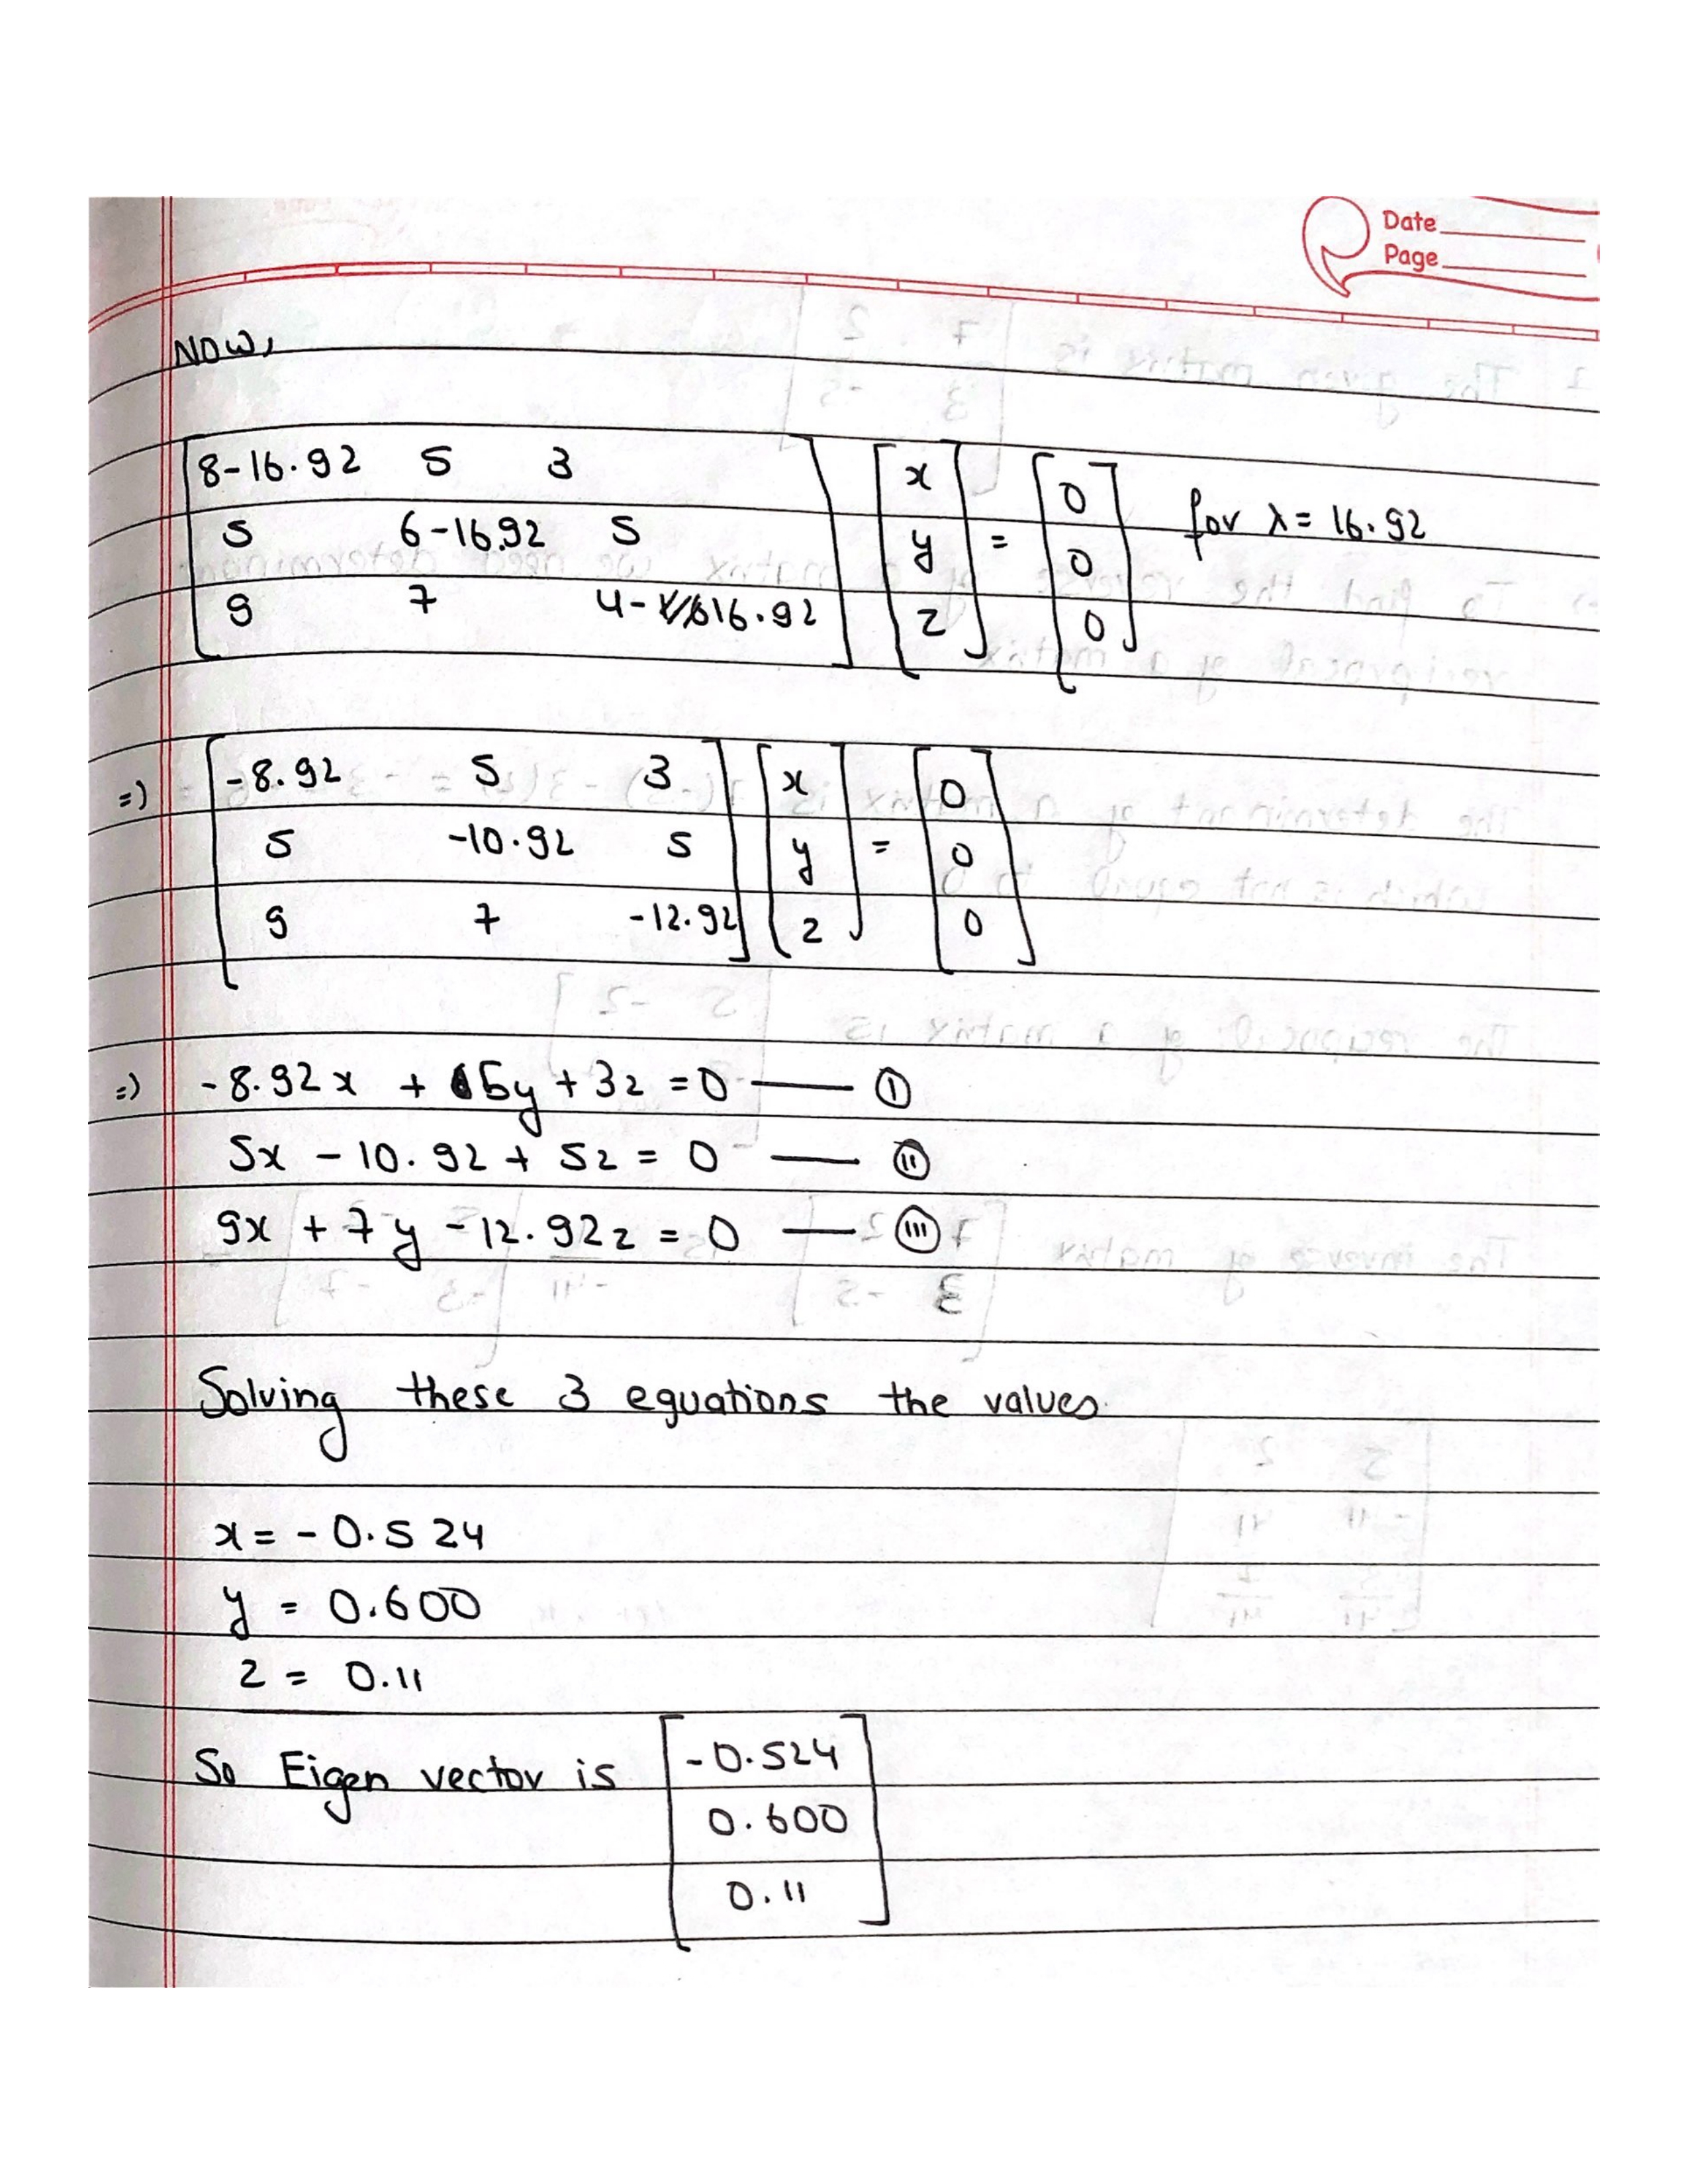 Date
Page
Now,
8-16.92 5 3
5 6-16.92 5
9 7 4-16.92
x
y
z
=
0
0
0
for λ = 16.92
=) -8.92 5 3
5 -10.92 5
9 7 -12.92
x
y
z
=
0
0
0
=) -8.92x + 5y + 3z = 0 — (I)
5x - 10.92 + 5z = 0 — (II)
9x + 7y - 12.92z = 0 — (III)
Solving these 3 equations the values.
x = - 0.524
y = 0.600
z = 0.11
So Eigen vector is
-0.524
0.600
0.11